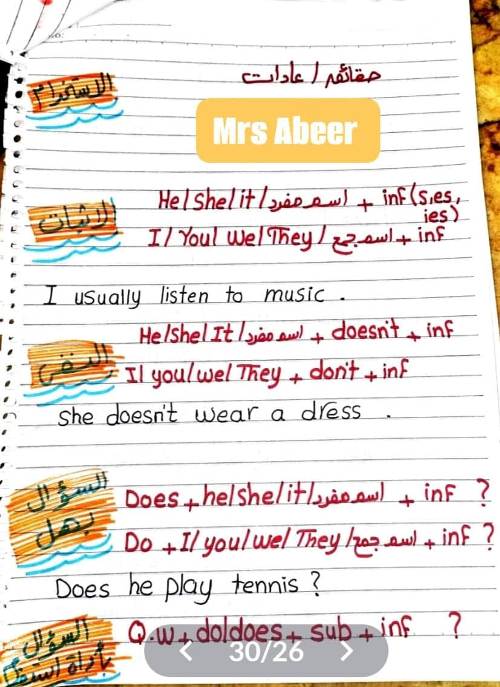 حقائق / عادات
الاستخدام
Mrs Abeer
He/she/it/اسم مفرد + inf (s,es,
ies)
الاثبات
I/You/we/They/اسم جمع + inf
I usually listen to music.
He/she/It/اسم مفرد + doesn't + inf
النفى
I/you/we/They + don't + inf
she doesn't wear a dress.
السؤال
بهل
Does + he/she/it/اسم مفرد + inf ?
Do + I/you/we/They/اسم جمع + inf ?
Does he play tennis?
السؤال
Q.w + do/does + sub + inf ?
بأداة استفهام
30/26